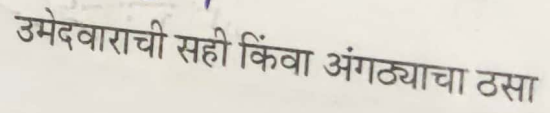 उमेदवाराची सही किंवा अंगठ्याचा ठसा